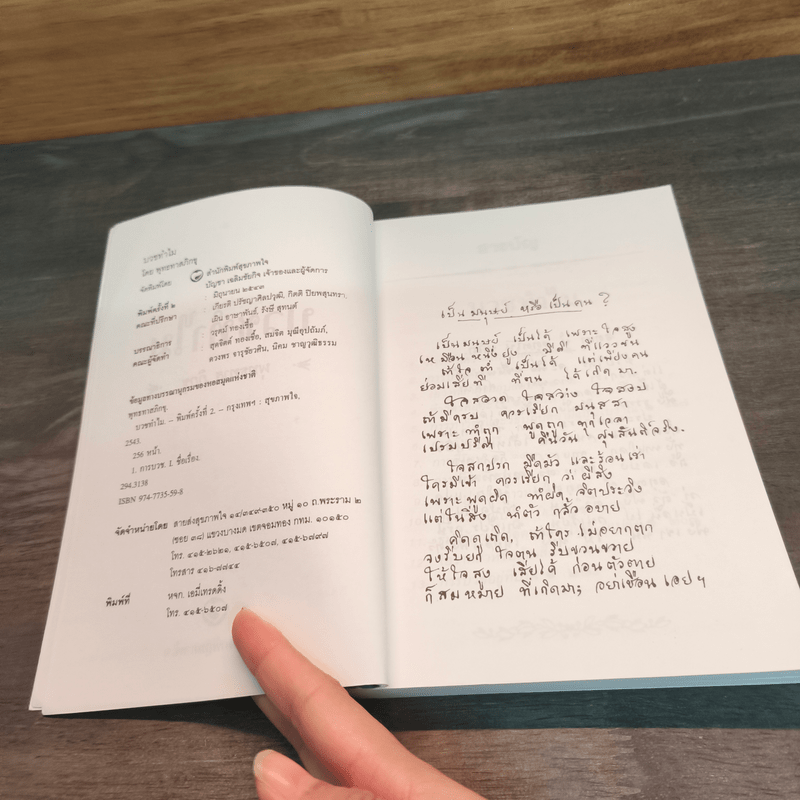 บวชทำไม
โดย พุทธทาสภิกขุ
จัดพิมพ์โดย : สำนักพิมพ์สุขภาพใจ
บัญชา เฉลิมชัยกิจ เจ้าของและผู้จัดการ
พิมพ์ครั้งที่ ๒ : มิถุนายน ๒๕๔๓
คณะที่ปรึกษา : เกียรติ ปรัชญาศิลปวุฒิ, กิตติ ปิยพสุนทรา,
เป็น อาษาพันธ์, รังษี สุทนต์
บรรณาธิการ : วรุตม์ ทองเชื้อ
คณะผู้จัดทำ : สุดจิตต์ ทองเชื้อ, สมจิต มุณีอุปถัมภ์,
ดวงพร จารุชัยวศิน, นิคม ชาญวุฒิธรรม
ข้อมูลทางบรรณานุกรมของหอสมุดแห่งชาติ
พุทธทาสภิกขุ.
บวชทำไม. – พิมพ์ครั้งที่ 2. – กรุงเทพฯ : สุขภาพใจ,
2543.
256 หน้า.
1. การบวช. I. ชื่อเรื่อง.
294.3138
ISBN 974-7735-59-8
จัดจำหน่ายโดย สายส่งสุขภาพใจ ๑๔/๓๔๙-๓๕๐ หมู่ ๑๐ ถ.พระราม ๒
(ซอย ๓๘) แขวงบางมด เขตจอมทอง กทม. ๑๐๑๕๐
โทร. ๔๑๕-๒๖๒๑, ๔๑๕-๖๕๐๗, ๔๑๕-๖๗๙๗
โทรสาร ๔๑๖-๗๗๔๔
พิมพ์ที่ หจก. เอมี่เทรดดิ้ง
โทร. ๔๑๕-๖๕๐๗
เป็นมนุษย์ หรือ เป็นคน ?
เป็นมนุษย์ เป็นได้ เพราะใจสูง
เหมือนหนึ่งยูง มีดี ที่แววขน
ถ้าใจต่ำ เป็นได้ แต่เพียงคน
ย่อมเสียที ที่ตน ได้เกิดมา.
ใจสอาด ใจสว่าง ใจสงบ
ถ้ามีครบ ควรเรียก มนุสสา
เพราะทำถูก พูดถูก ทุกเวลา
เปรมปรีดา คืนวัน ศุขสันติ์จริง.
ใจสกปรก มืดมัว และร้อนเร่า
ใครมีเข้า ควรเรียก ว่าผีสิง
เพราะพูดผิด ทำผิด จิตประวิง
แต่ในสิ่ง นำตัว กลั้วอบาย
คิดดูเถิด, ถ้าใคร ไม่อยากตก
จงรีบยก ใจตน รีบขวนขวาย
ให้ใจสูง เสียได้ ก่อนตัวตาย
ก็สมหมาย ที่เกิดมา; อย่าเชือนเอยฯ